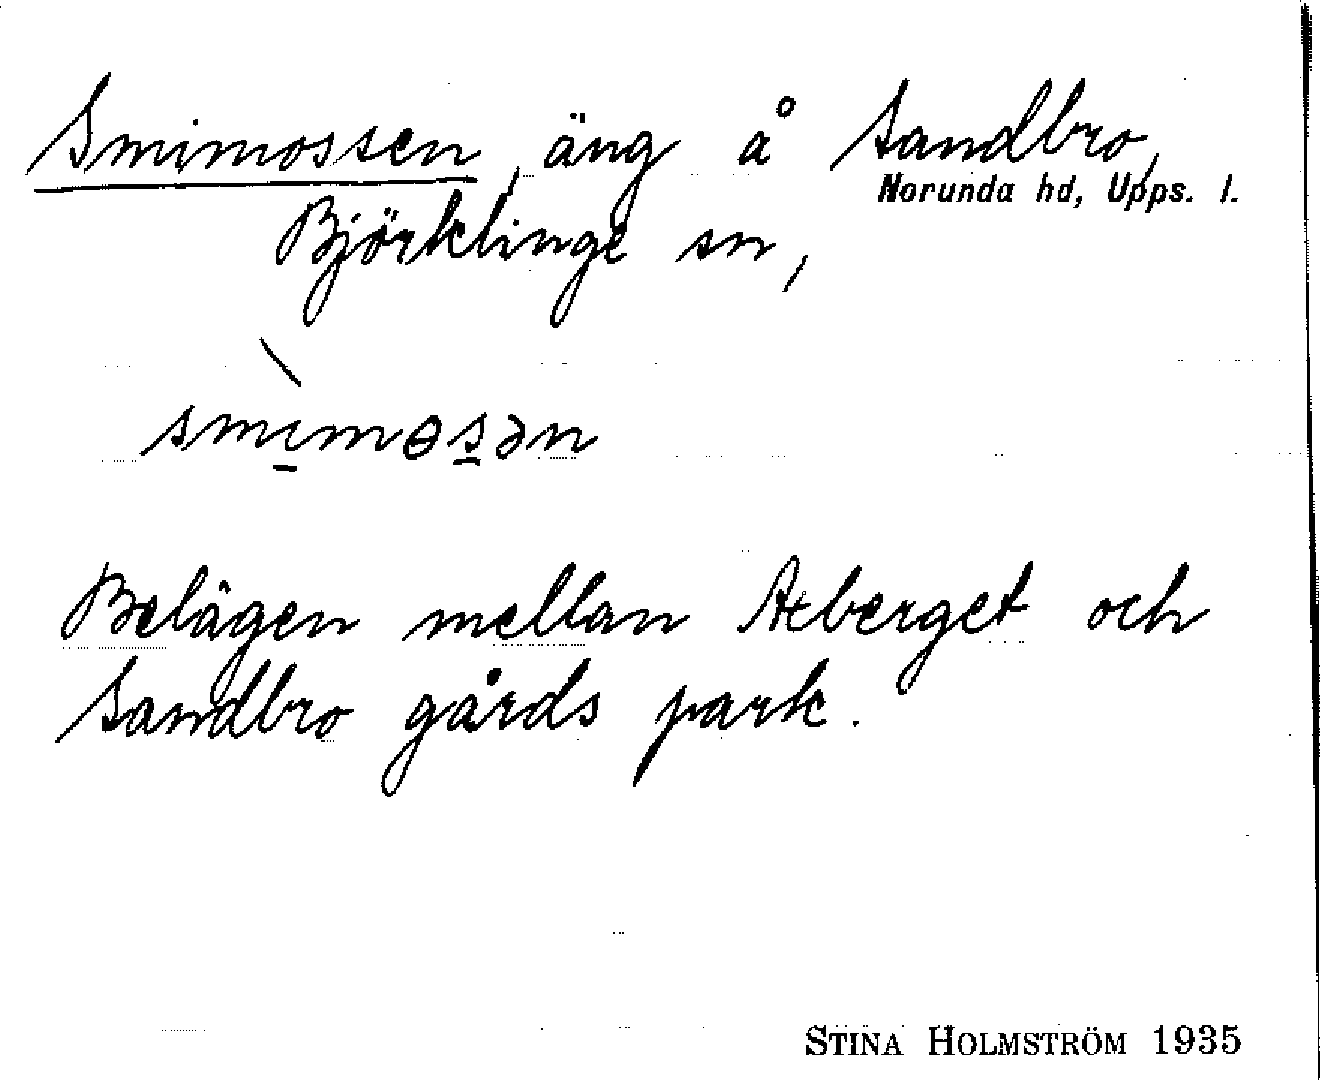 Smimossen, äng å Sandbro,
Norunda hd, Upps. l.
Björklinge sn,
smìmɵsən
Belägen mellan Åkberget och
Sandbro gårds park.
STINA HOLMSTRÖM 1935